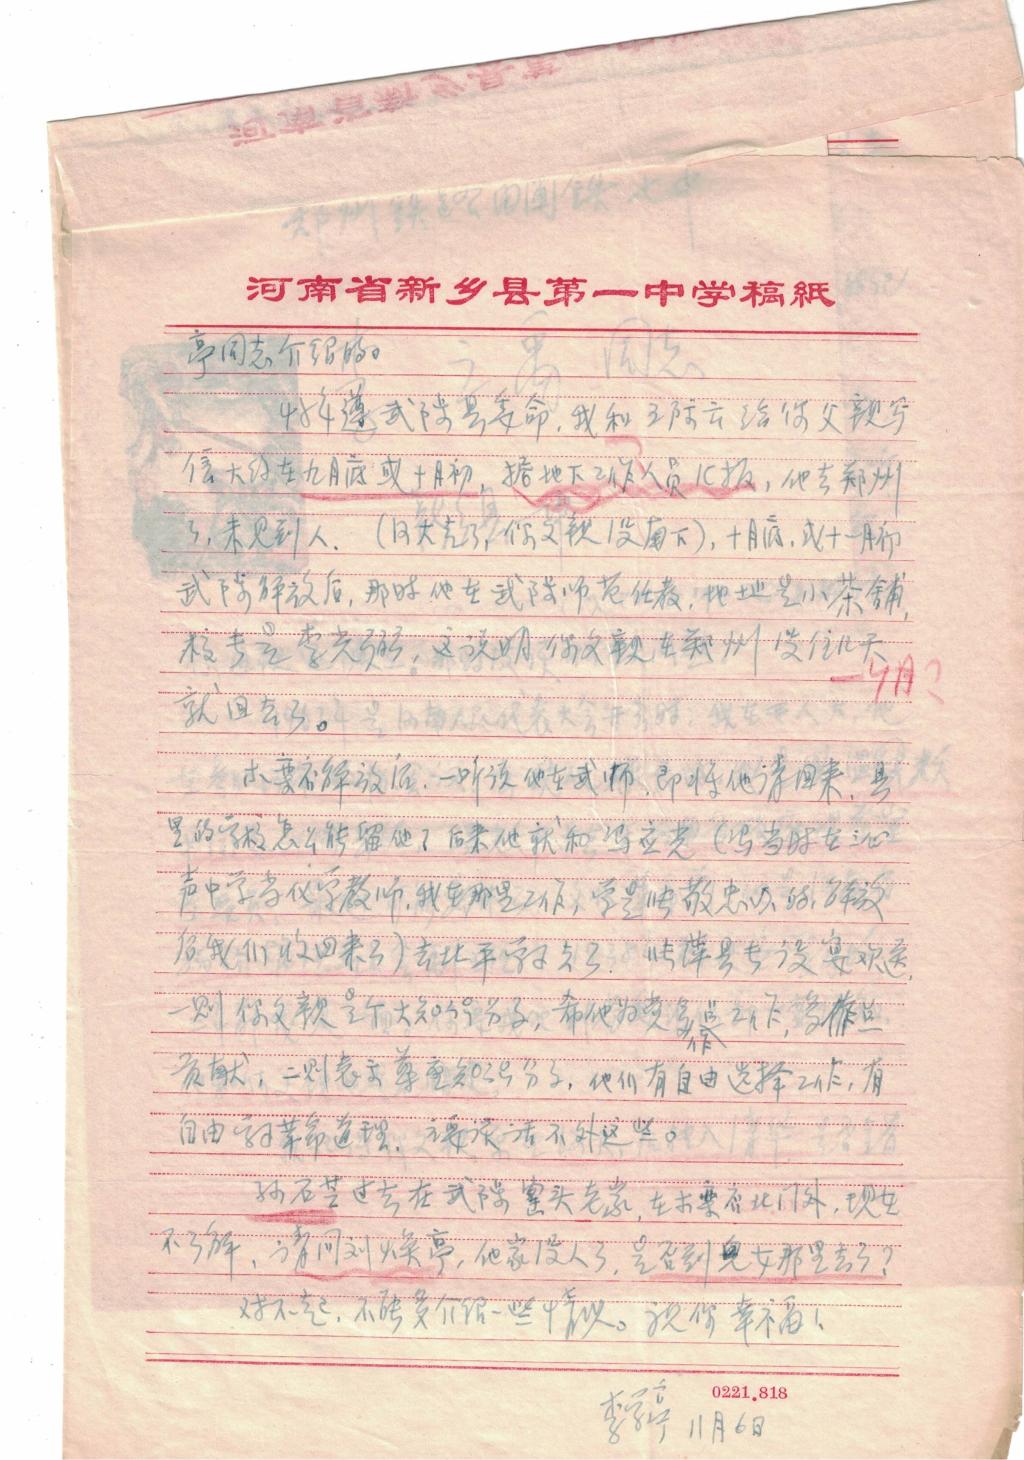 河南省新乡县第一中学稿紙
亭同志介绍的。
48年遵武陟县委命,我和王陟云给你父亲写
信大约在九月底或十月初,据地下工作人员汇报,他去郑州
了,未见到人.(汉夫走了,你父亲没南下),十月底,或十一月初
武陟解放后,那时他在武陟师范任教,地址是小茶铺,
校长是李光弼,这说明你父亲在郑州没住几天
一个月?
就回去了。
木栾店解放后,一听说他在武师,即将他请回来,县
里的学校怎么能留他?后来他就和冯应光(冯当时在
声中学当化学教师,我在那里工作,学是张敬忠办的,解放
后我们收回来了)去北平学习去了.张萍县长设宴欢送,
一则你父亲是个大知识分子,希他为党多作工作,多作点
贡献,二则表示尊重知识分子,他们有自由选择工作,有
自由学习革命道理.主要谈话不外这些。
孙石芝过去在武陟窑头老家,在木栾店北门外,现在
不了解,请问刘焕亭,他家没人了,是否到儿女那里去了?
对不起,不能多介绍一些情况。祝你幸福!
0221.818
李学亭 11月6日